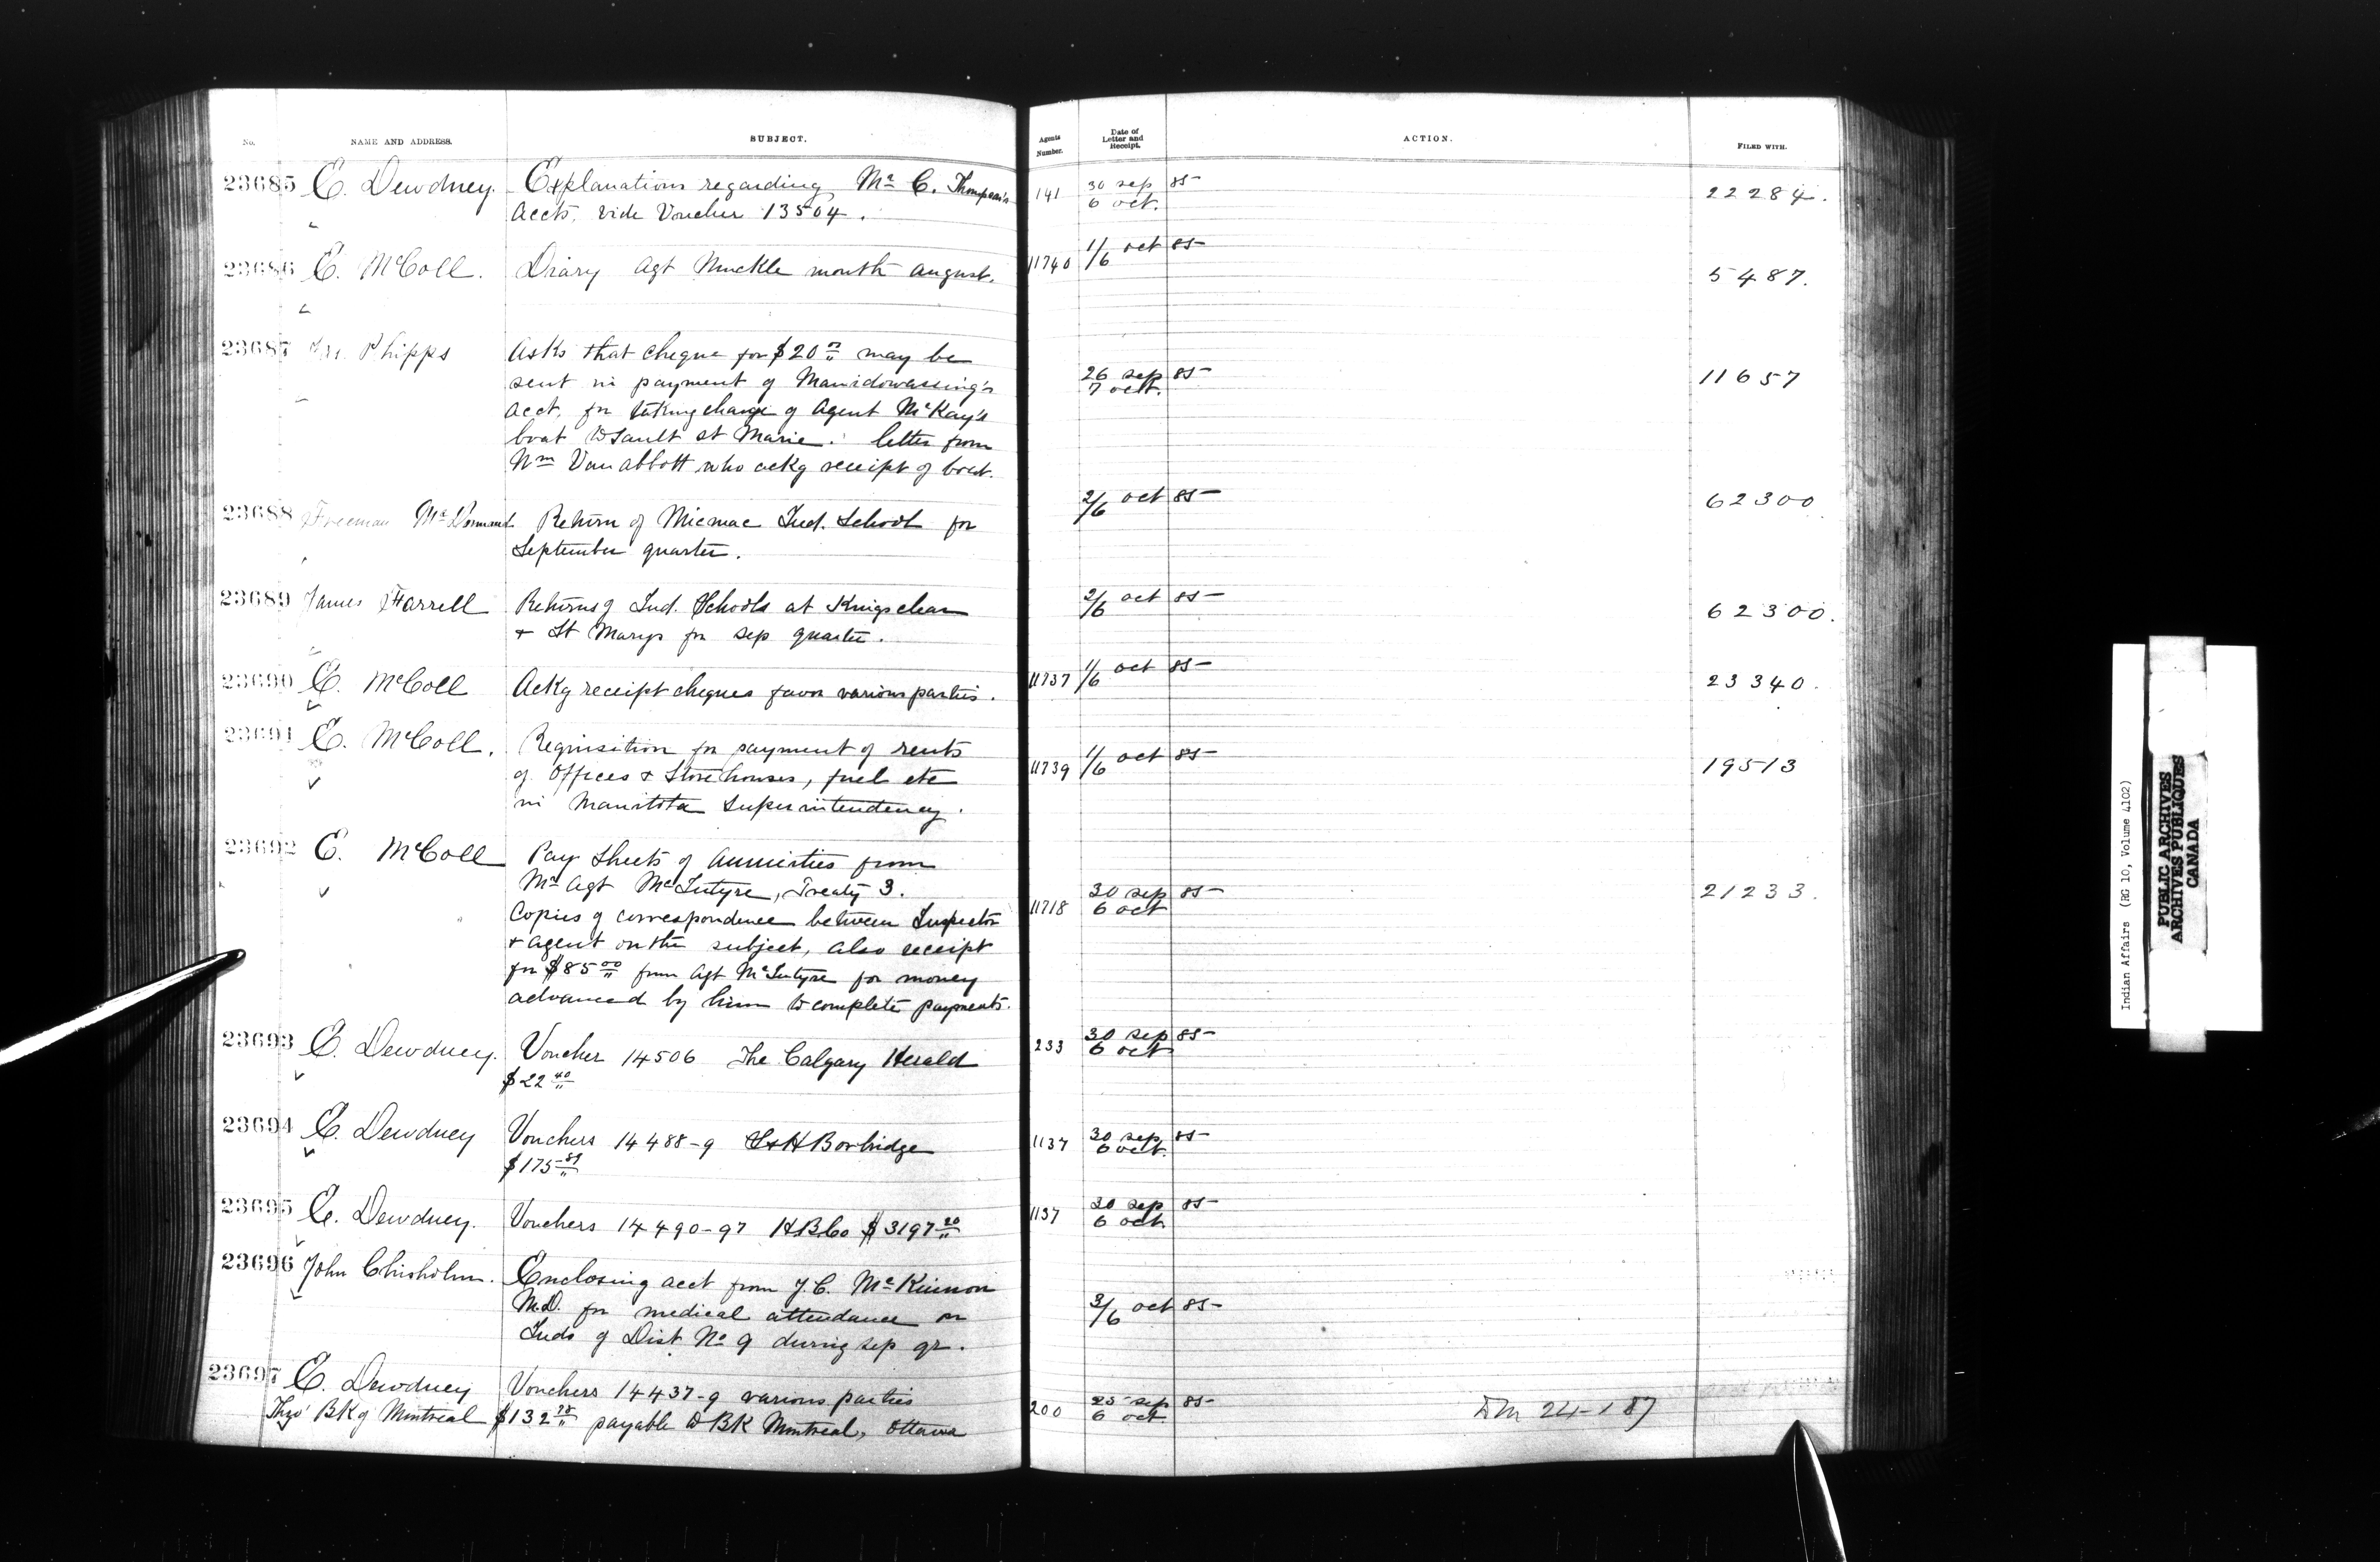 No. NAME AND ADDRESS. SUBJECT. Agents Number. Date of Letter and Receipt. ACTION. FILED WITH.
23685 E. Dewdney. Explanations regarding Mr C. Thompson's 141 30 sep 85 22284.
accts, vide Voucher 13504. 6 oct.
23686 E. McColl. Diary agt Muckle month august. 11740 1/6 oct 85 5487.
23687 Phipps Asks that cheque for $20 may be
sent in payment of Manidowassing's 26 sep 85 11657
acct. for taking charge of Agent McKay's 7 oct.
boat to Sault St Marie. letter from
Wm Van abbott who ackg receipt of boat.
23688 Freeman McDormand Return of Micmac Ind. School for 2/6 oct 85 62300
September quarter.
23689 James Farrell Returns of Ind. Schools at Kingsclear 2/6 oct 85 62300.
& St Marys for sep quarter.
23690 E. McColl Ackg receipt cheques favor various parties. 11737 1/6 oct 85 23340.
23691 E. McColl. Requisition for payment of rents
of Offices & Storehouses, fuel etc 11739 1/6 oct 85 19513
in Manitoba Superintendency.
23692 E. McColl Pay Sheets of annuities from
Mr Agt McIntyre, Treaty 3. 30 sep 85 21233.
Copies of correspondence between Inspector 11718 6 oct
& agent on the subject, also receipt
for $85 00 from Agt McIntyre for money
advanced by him to complete payments.
23693 E. Dewdney. Voucher 14506 The Calgary Herald 233 30 sep 85
$22 40 6 oct
23694 E. Dewdney Vouchers 14488-9 S&H Borbridge 1137 30 sep 85
$175 6 oct.
23695 E. Dewdney. Vouchers 14490-97 HBCo $3197 20 1137 30 sep 85
6 oct
23696 John Chisholm. Enclosing acct from J.C. McKinnon
M.D. for medical attendance on 3/6 oct 85
Inds of Dist No 9 during sep qr.
23697 E. Dewdney Vouchers 14437-9 various parties 200 25 sep 85
Thro' BK of Montreal $132 78 payable to BK Montreal, Ottawa 6 oct 24-1 87
Indian Affairs (RG 10, Volume 4102)
PUBLIC ARCHIVES
ARCHIVES PUBLIQUES
CANADA